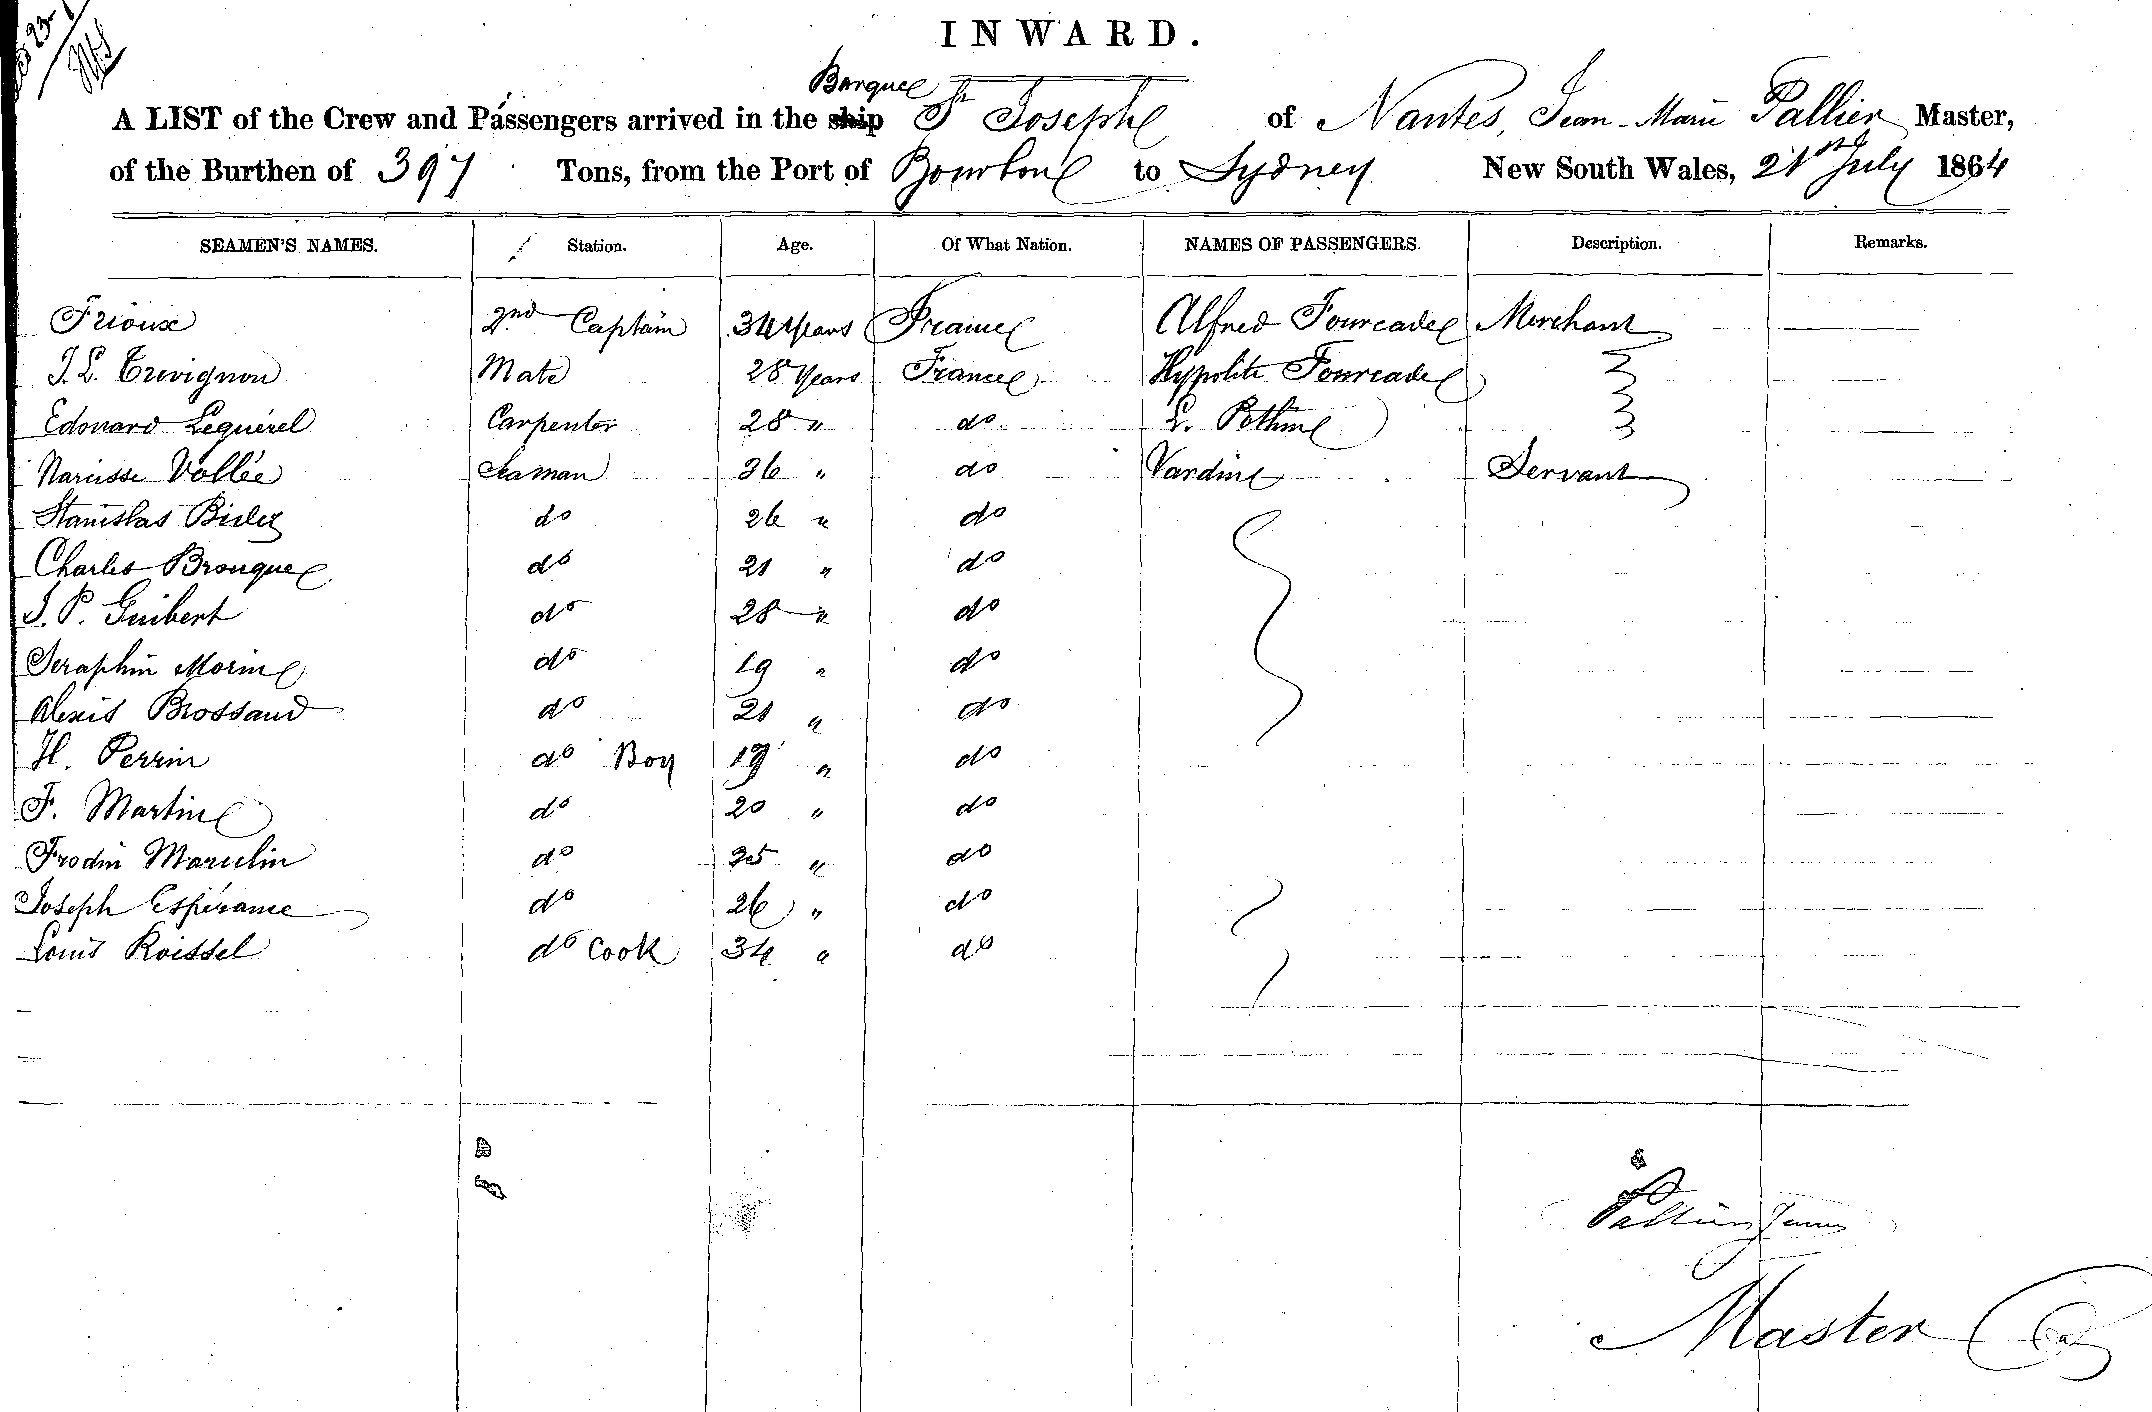 INWARD.
Barque
A LIST of the Crew and Passengers arrived in the ship St Joseph of Nantes, Jean-Marie Pallier Master,
of the Burthen of 397 Tons, from the Port of Bourbon to Sydney New South Wales, 21st July 1864
SEAMEN'S NAMES. Station. Age. Of What Nation. NAMES OF PASSENGERS. Description. Remarks.
Frioux 2nd Captain 34 years France Alfred Fourcade Merchant
J. L. Crevignon Mate 28 years France Hypolite Fourcade
Edouard Lequérel Carpenter 28 " do L. Pothin
Narcisse Vallée Seaman 36 " do Vardin Servant
Stanislas do 26 " do
Charles Brouque do 21 " do
J. P. Guibert do 28 " do
Seraphin Morin do 19 " do
Alexis Brossaud do 21 " do
H. Perrin do Boy 19 " do
F. Martin do 20 " do
Frodin Marcelin do 25 " do
Joseph Espérance do 26 " do
Louis Roissel do Cook 34 " do
Pallier Jean
Master